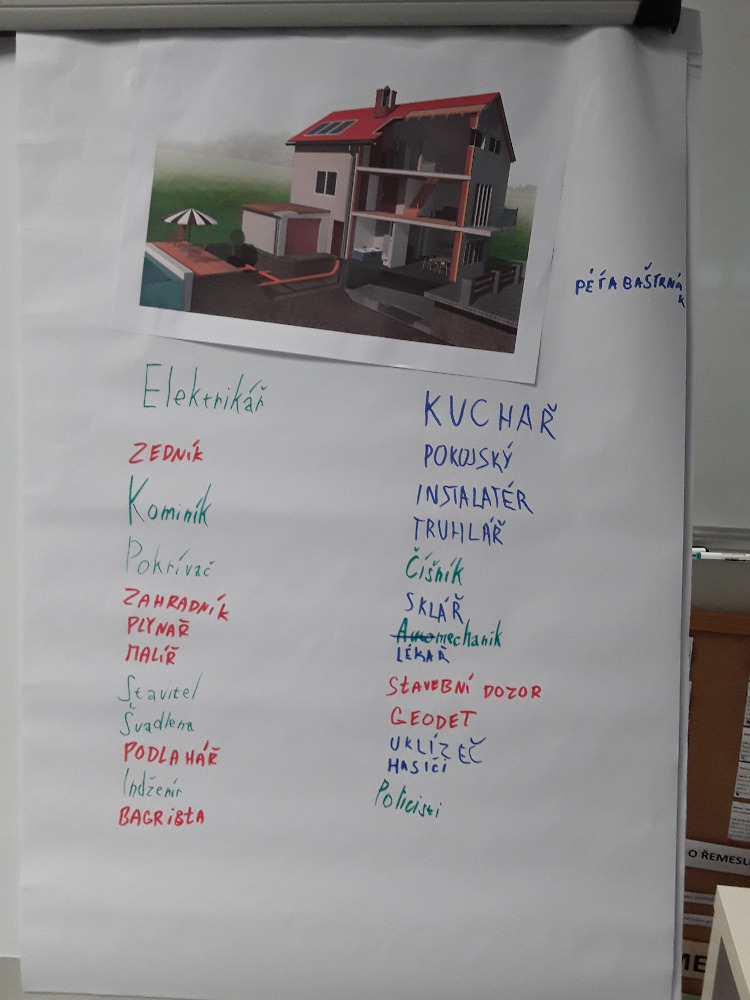 PÉŤA BAŠTRNÁ
K
Elektrikář
ZEDNÍK
Kominík
Pokrívač
ZAHRADNÍK
PLYNAŘ
MALÍŘ
Stavitel
Švadlena
PODLAHÁŘ
Indženír
BAGRISTA
KUCHAŘ
POKOJSKÝ
INSTALATÉR
TRUHLÁŘ
Číšník
SKLÁŘ
Automechanik
LÉKAŘ
STAVEBNÍ DOZOR
GEODET
UKLÍZEČ
HASIČI
Policisti
O ŘEMESL